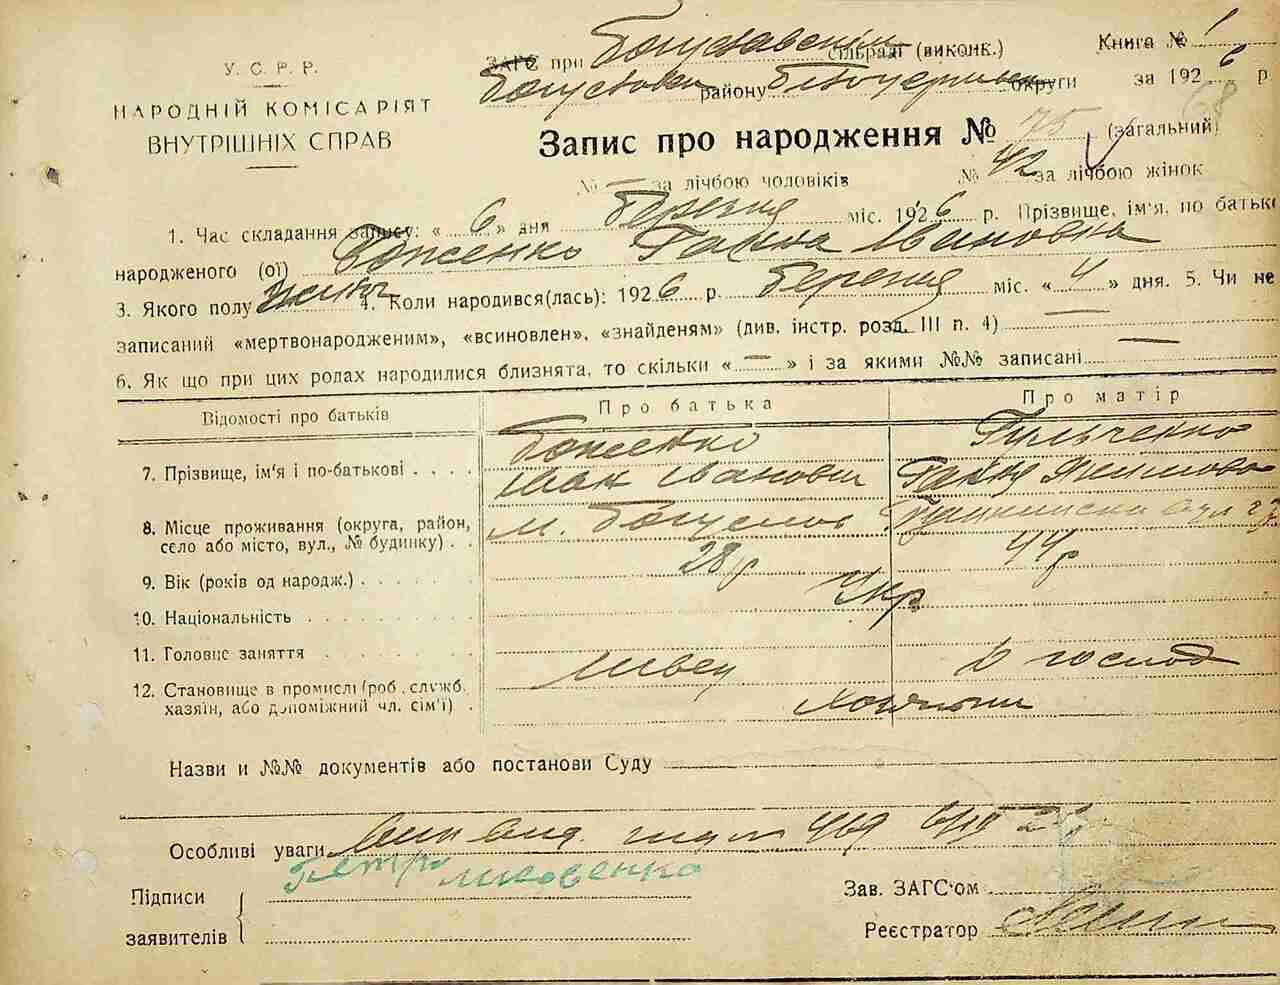 У. С. Р. Р.
НАРОДНІЙ КОМІСАРІЯТ
ВНУТРІШНІХ СПРАВ
ЗАГС при Богуславській сільраді (виконк.) Книга № 1
району округи за 1926 р.
68
Запис про народження № 75 (загальний)
№ — за лічбою чоловіків № 42 за лічбою жінок
1. Час складання запису: « 6 » дня березня міс. 1926 р. Прізвище, ім'я, по батькс
народженого (ої) Боженко Ганна Івановна
3. Якого полу 4. Коли народився(лась): 1926 р. березня міс. « 4 » дня. 5. Чи не
записаний «мертвонародженим», «всиновлен», «знайденям» (див. інстр. розд. III п. 4) —
6. Як що при цих родах народилися близнята, то скільки « — » і за якими №№ записані —
Відомості про батьків Про батька Про матір
Боженко
7. Прізвище, ім'я і по-батькові . . . . Іван Іванович Ганна
8. Місце проживання (округа, район, м. Богуслав
село або місто, вул., № будинку) . .
9. Вік (років од народж.) . . . . . . 28 р
10. Національність . . . . . . . . Укр
11. Головне заняття . . . . . . . швец
12. Становище в промислі (роб., служб.
хазяїн, або допоміжний чл. сім'ї) .
Назви и №№ документів або постанови Суду —
Особливі уваги
Підписи Петро Лисовенко
заявителів
Зав. ЗАГС'ом
Реєстратор